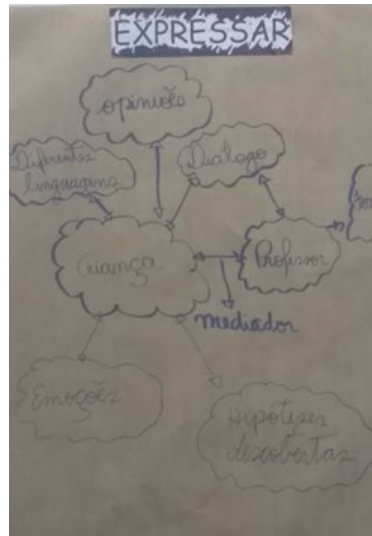 EXPRESSAR
opiniões
Diferentes
linguagens
Diálogo
Criança
Professor
mediador
Emoções
Hipóteses
descobertas